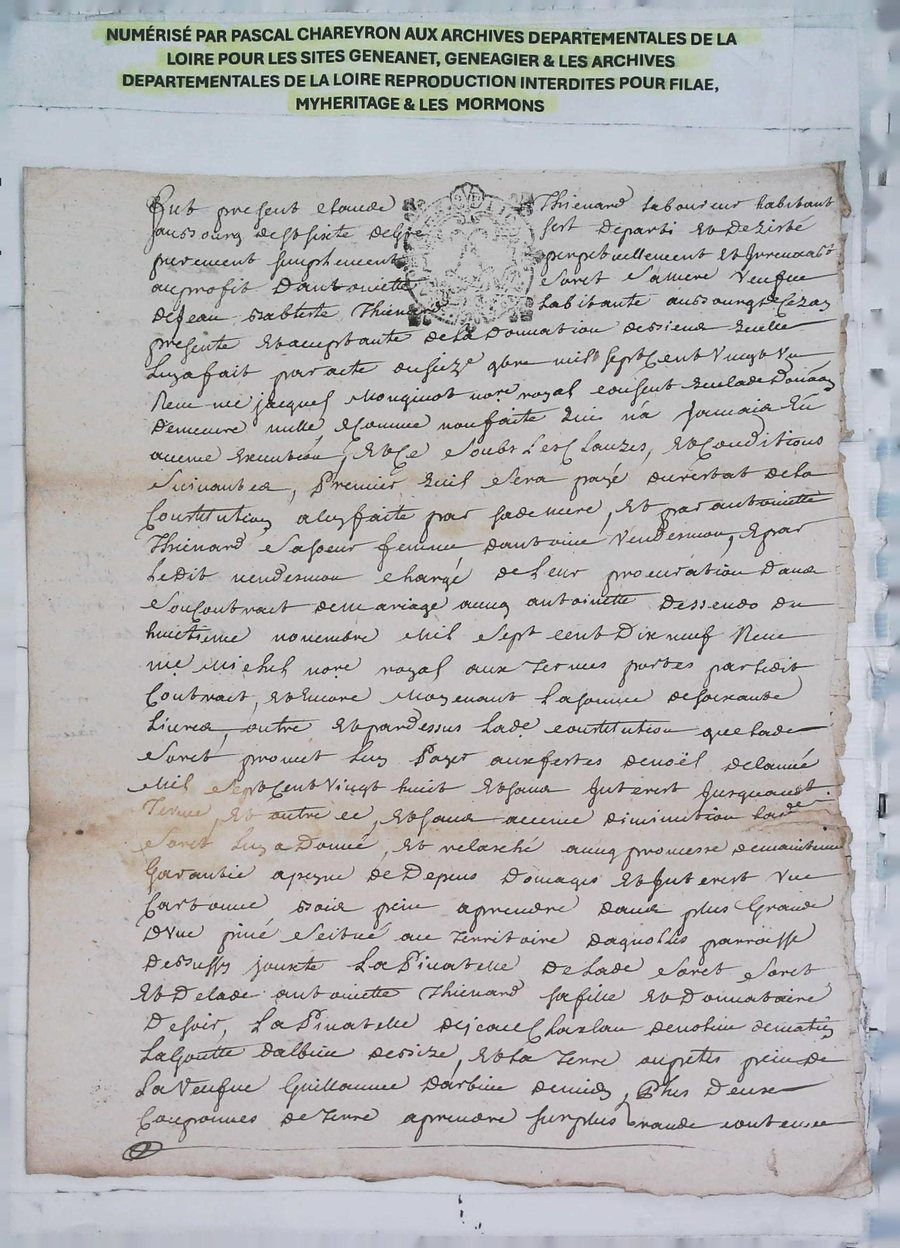 NUMÉRISÉ PAR PASCAL CHAREYRON AUX ARCHIVES DEPARTEMENTALES DE LA
LOIRE POUR LES SITES GENEANET, GENEAGIER & LES ARCHIVES
DEPARTEMENTALES DE LA LOIRE REPRODUCTION INTERDITES POUR FILAE,
MYHERITAGE & LES MORMONS
Fut present Claude Thienard laboureur habitant
au bourg de st sixte sest departi et dezisté
purement simplement perpetuellement et
au profit dantoinette Soret sa mere veufve
de Jean Babtiste Thienard habitante au bourg de Cezay
presente et acceptante de la donnation
luy a fait par acte du seize 9bre mil sept cent vingt un
Receu me jacques Monginot nore royal consent
demeure nulle comme non faite na jamais eu
aucune execution, et ce soubs les clauzes, et conditions
suivantes, Premier quil sera payé du restat de la
Constitution a luy faite par sade mere, et par antoinette
Thienard sa soeur femme dantoine Vendesmon, et par
ledit vendesmon chargé de leur procuration dans
son contract de mariage avecq antoinette Dessendo du
huitieme novembre mil sept cent dix neuf Receu
me Michel nore royal aux termes portes par ledit
Contract, et encore moyenant la somme de soixante
livres, outre et par dessus lade constitution que lade
Soret promet luy payer aux festes de noel de lannée
mil sept cent vingt huit et sans interest jusquaudt
Terme, et outre ce, et sans aucune diminition lade
Soret luy a donné, et relasché avecq promesse de maintenue
Garantie a peyne de depens domages et interest une
Cartonnée bois pin a prendre dans plus Grande
d'une piné scitué au territoire dagnolles parroisse
dessussy jouxte La Pinatelle de lade Soret
et de lade antoinette Thienard sa fille et donnataire
de soir, La Pinatelle de matin
La Goutte de bize, et la Terre
La Veufve Guillaumee de midy, Plus deux
Couponnees de Terre a prendre sur plus grande contenue